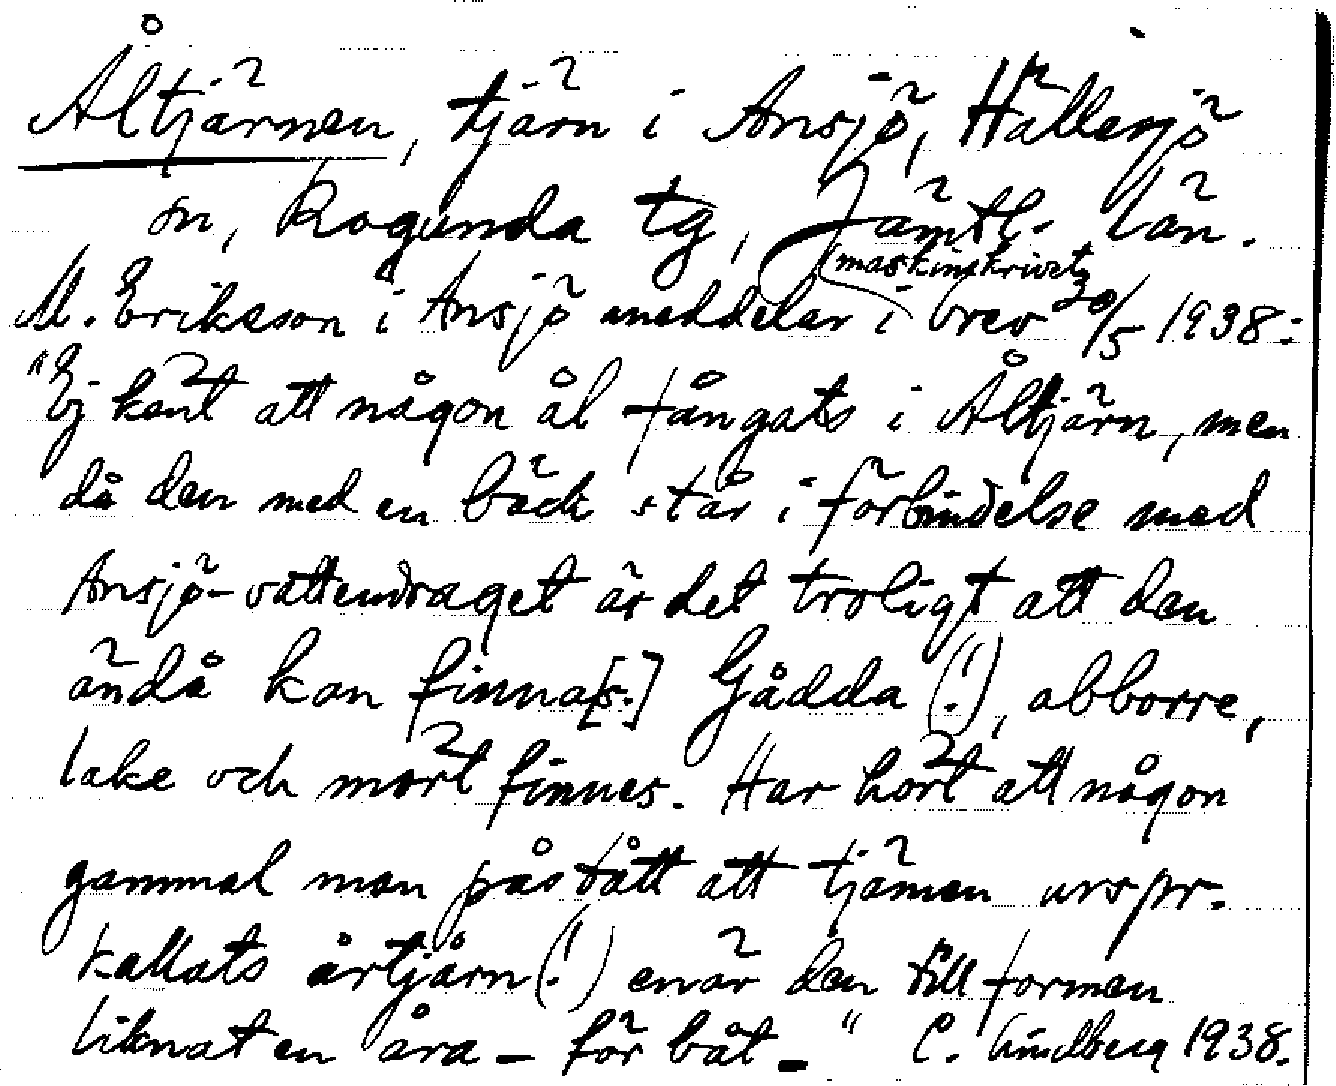 Åltjärnen, tjärn i Ansjö, Hällesjö
sn, Ragunda tg, Jämtl. län.
(maskinskrivet)
M. Eriksson i Ansjö meddelar i brev 30/5 1938:
"Ej känt att någon ål fångats i Åltjärn, men
då den med en bäck står i förbindelse med
Ansjö-vattendraget är det troligt att den
ändå kan finna[s.] Gådda (!), abborre,
lake och mört finnes. Har hört att någon
gammal man påstått att tjärnen urspr.
kallats årtjårn (!) enär den till formen
liknat en åra – för båt –" C. Lindberg 1938.